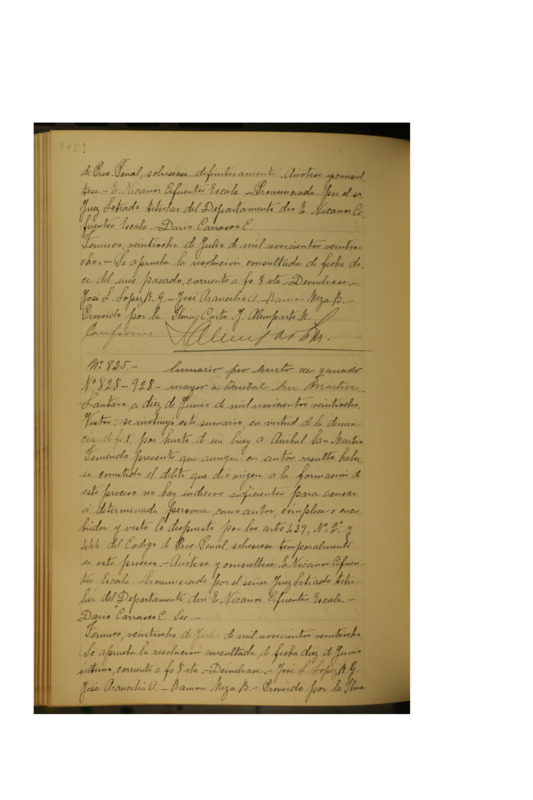 de Proc. Penal, sobreseese definitivamente. Anótese y consúl
tese.- E. Nicanor Cifuentes Escala.- Pronunciada por el sr.
Juez Letrado titular del Departamento don E. Nicanor Ci-
fuentes Escala.- Dario Carrasco C.
Temuco, veintiocho de Julio de mil novecientos veintio-
cho.- Se aprueba la resolución consultada de fecha do-
ce del mes pasado, corriente a fs 8 vta. Devuélvase.-
José L. Lopez R. G.- José Arancibia A.- Ramón Meza B.-
Proveido por la Iltma. Corte. J. Alemparte M.
Conforme
Nº 825.- Sumario por hurto de ganado
Nº 828-928- mayor a Anibal San Martin.
Lautaro a diez de Junio de mil novecientos veintiocho.
Vistos: se instruyó este sumario, en virtud de la denun-
cia de fs 1, por hurto de un buey a Anibal San Martin
Teniendo presente que aunque en autos resulta haber
se cometido el delito que dió origen a la formación de
este proceso no hay indicios suficientes para acusar
a determinada persona, como autor, cómplice o encu-
bridor y visto lo dispuesto por los arts 437, Nº 2º y
444 del Código de Proc. Penal, sobreseese temporalmente
en este proceso.- Anótese y consúltese. E. Nicanor Cifuen-
tes Escala. Pronunciada por el señor Juez Letrado titu-
lar del Departamento, don E. Nicanor Cifuentes Escala.-
Dario Carrasco C. Sec.-
Temuco, veintiocho de Julio de mil novecientos veintiocho
Se aprueba la resolución consultada de fecha diez de Junio
último, corriente a fs 8 vta.- Devuélvase.- José L. Lopez R. G.
José Arancibia A.- Ramon Meza B.- Proveido por la Iltma